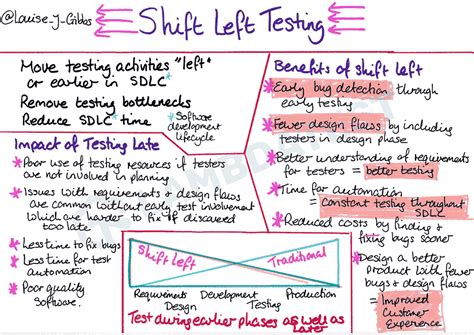 @Louise_J_Gibbs
Shift Left Testing
Move testing activities "left"
or earlier in SDLC*
Remove testing bottlenecks
Reduce SDLC time
*Software
development
lifecycle
Impact of Testing Late
* Poor use of testing resources if testers
are not involved in planning
* Issues with requirements & design flaws
are common without early test involvement
which are harder to fix if discovered
too late
* Less time to fix bugs
* Less time for test
automation
* Poor quality
Software.
Benefits of shift left
* Early bug detection through
early testing
* Fewer design flaws by including
testers in design phase
* Better understanding of requirements
for testers = better testing
* Time for automation =
Constant testing throughout
SDLC
* Reduced costs by finding &
fixing bugs sooner
* Design a better
Product with fewer
bugs & design flaws
= Improved
Customer
Experience
Shift Left
Traditional
Requirements Development Production
Design Testing
Test during earlier phases as well as
Later